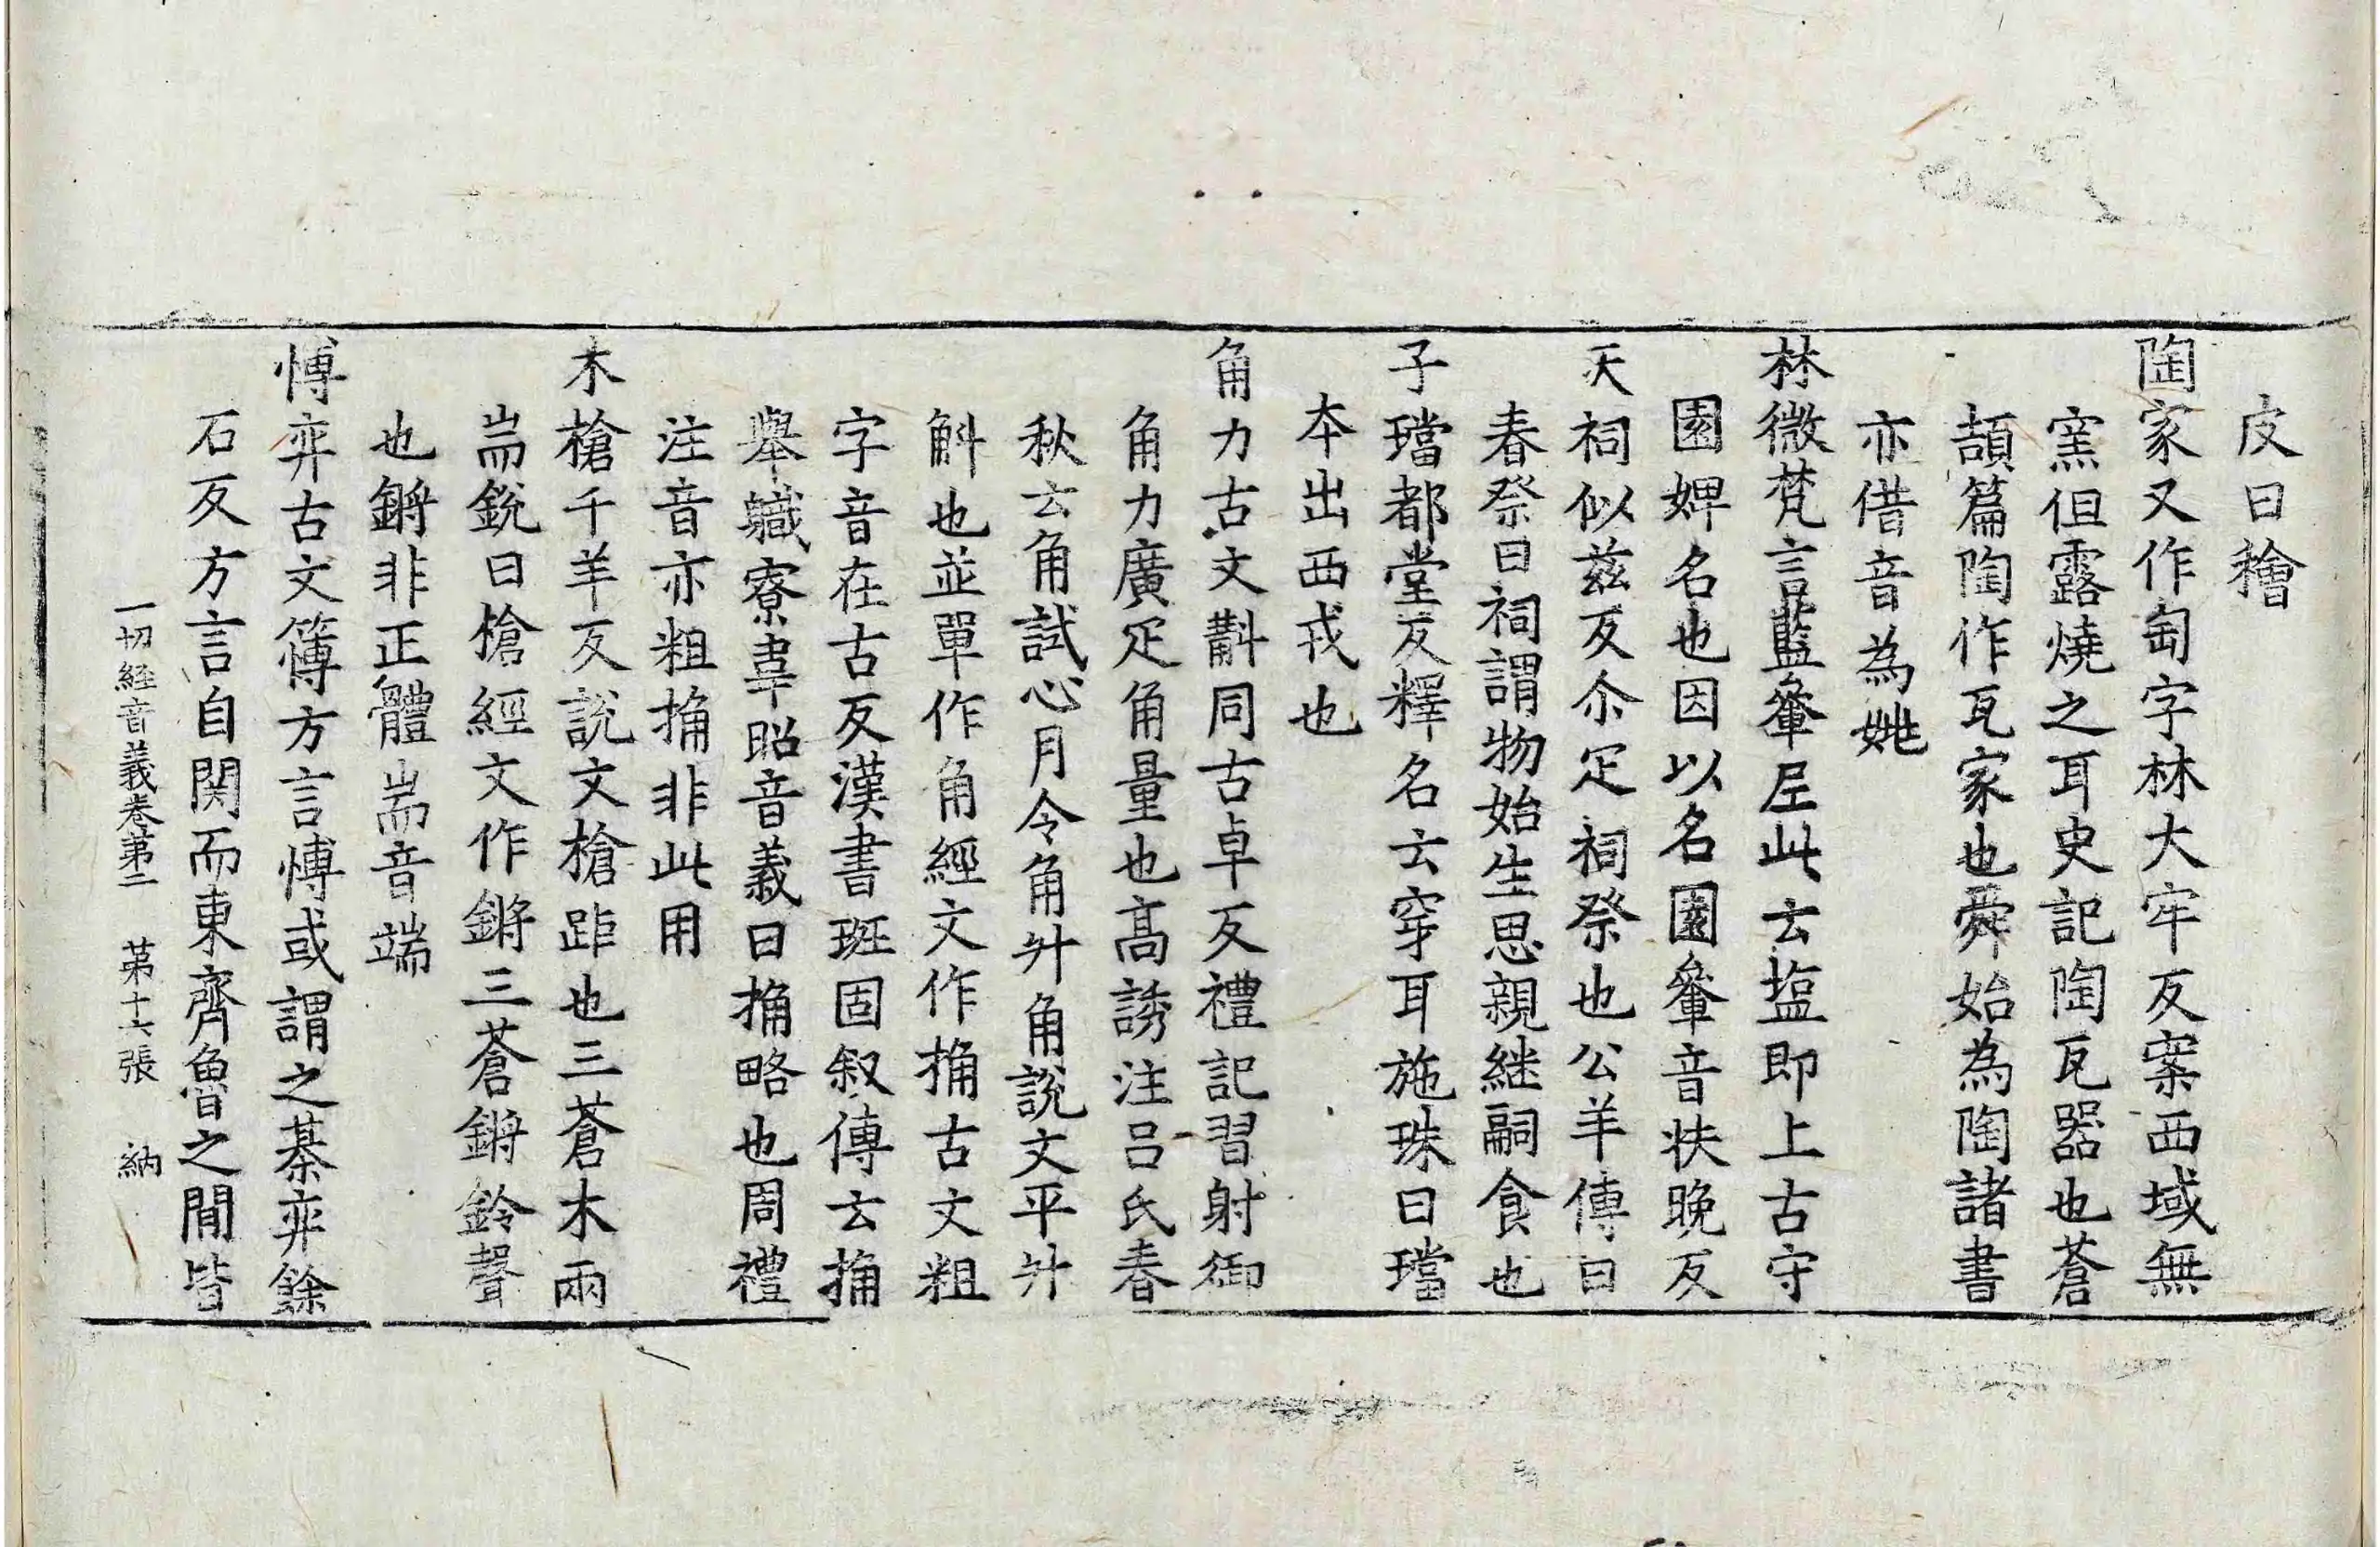 皮曰䆰
陶家又作匋字林大牢反案西域無
窯但露燒之耳史記陶瓦器也蒼
頡篇陶作瓦家也舜始為陶諸書
亦借音為姚
林微梵言藍軬𡊮此云塩即上古守
園婢名也因以名園軬音扶晚反
天祠似茲反尒疋祠祭也公羊傳曰
春祭曰祠謂物始生思親継嗣食也
子璫都堂反釋名云穿耳施珠曰璫
夲出西戎也
角力古文斠同古卓反禮記習射御
角力廣疋角量也髙誘注吕氏春
秋云角試心月令角升角說文平升
斛也並單作角經文作捔古文粗
字音在古反漢書班固叙傳云捔
舉軄寮韋昭音義曰捔略也周禮
注音亦粗捔非此用
木槍千羊反說文槍距也三蒼木兩
耑銳曰槍經文作鏘三蒼鏘鈴聲
也鏘非正體耑音端
愽弈古文簙方言愽或謂之棊弈餘
石反方言自関而東齊魯之閒皆
一切經音義卷第二　第十六張　納